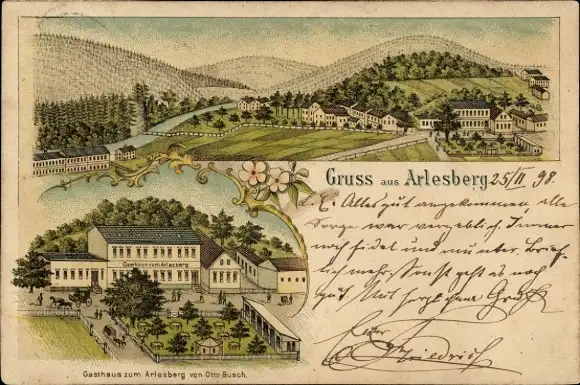 Gruss aus Arlesberg 25/11 98.
L. E. Alles gut angekommen, alle
Sorge war vergeblich. Immer
noch fidel und munter. Brief-
lich mehr. Sonst geht es noch
gut. Mit herzlichem Gruß
Euer
Friedrich
Gasthaus zum Arlesberg
Gasthaus zum Arlesberg von Otto Busch.